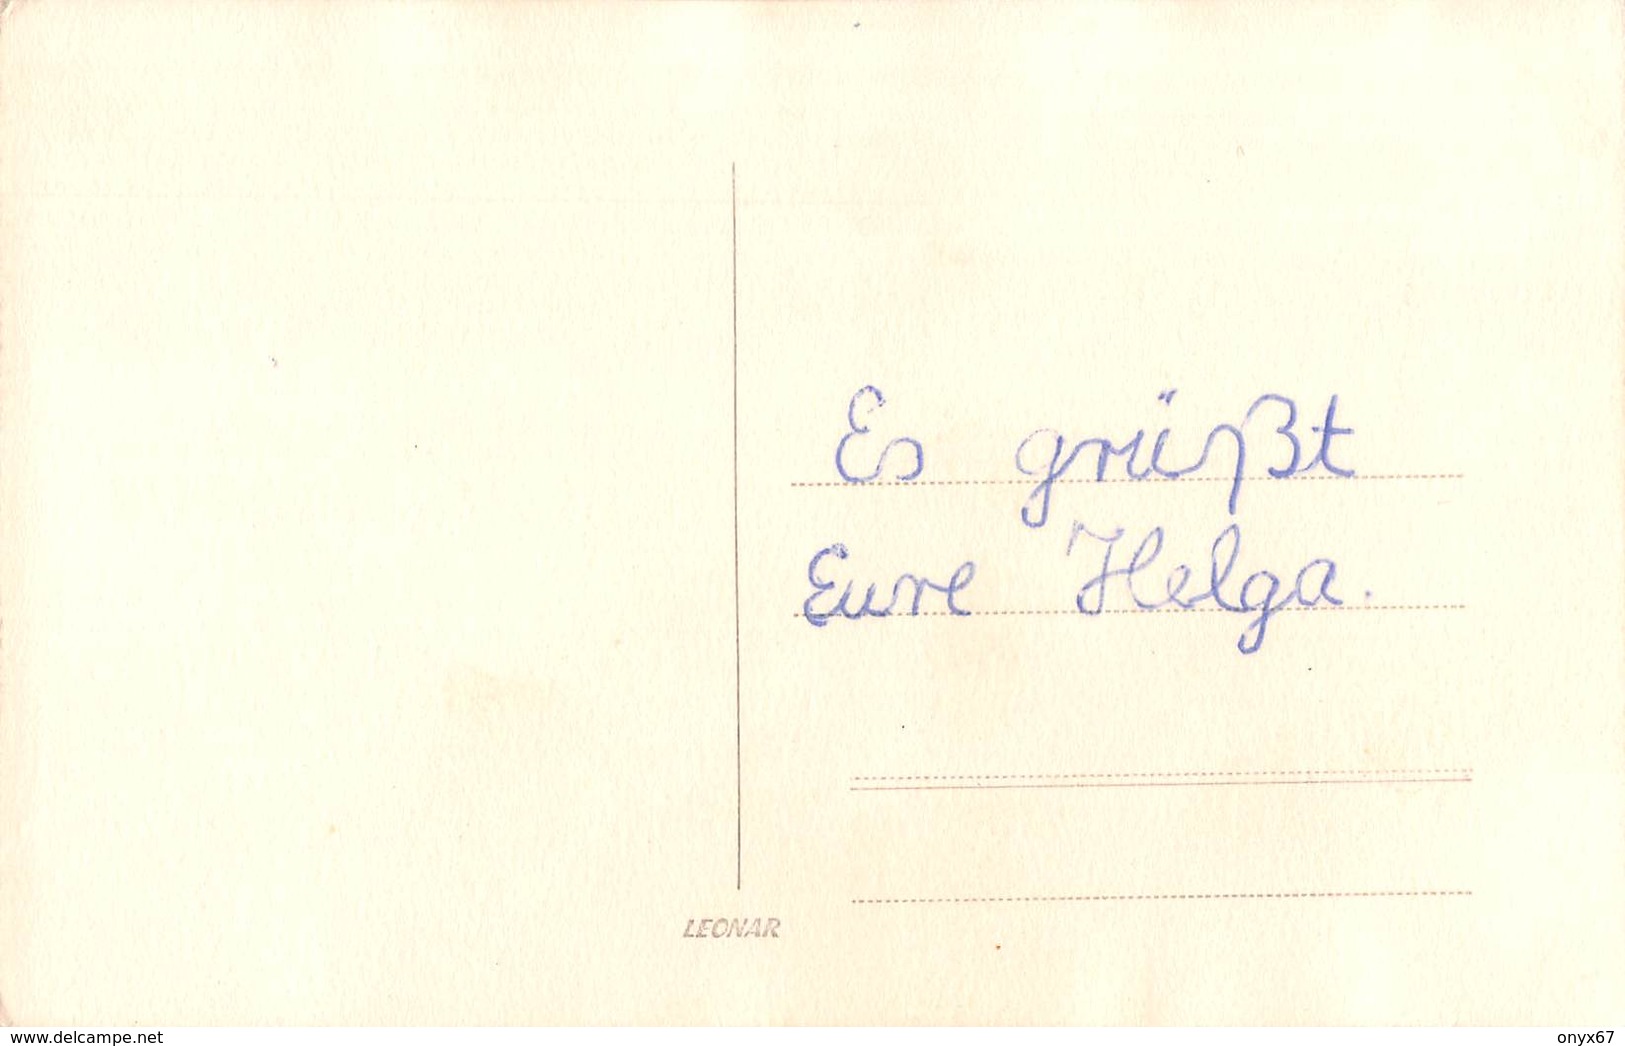 Es grüßt
Eure Helga.
LEONAR
www.delcampe.net
onyx67